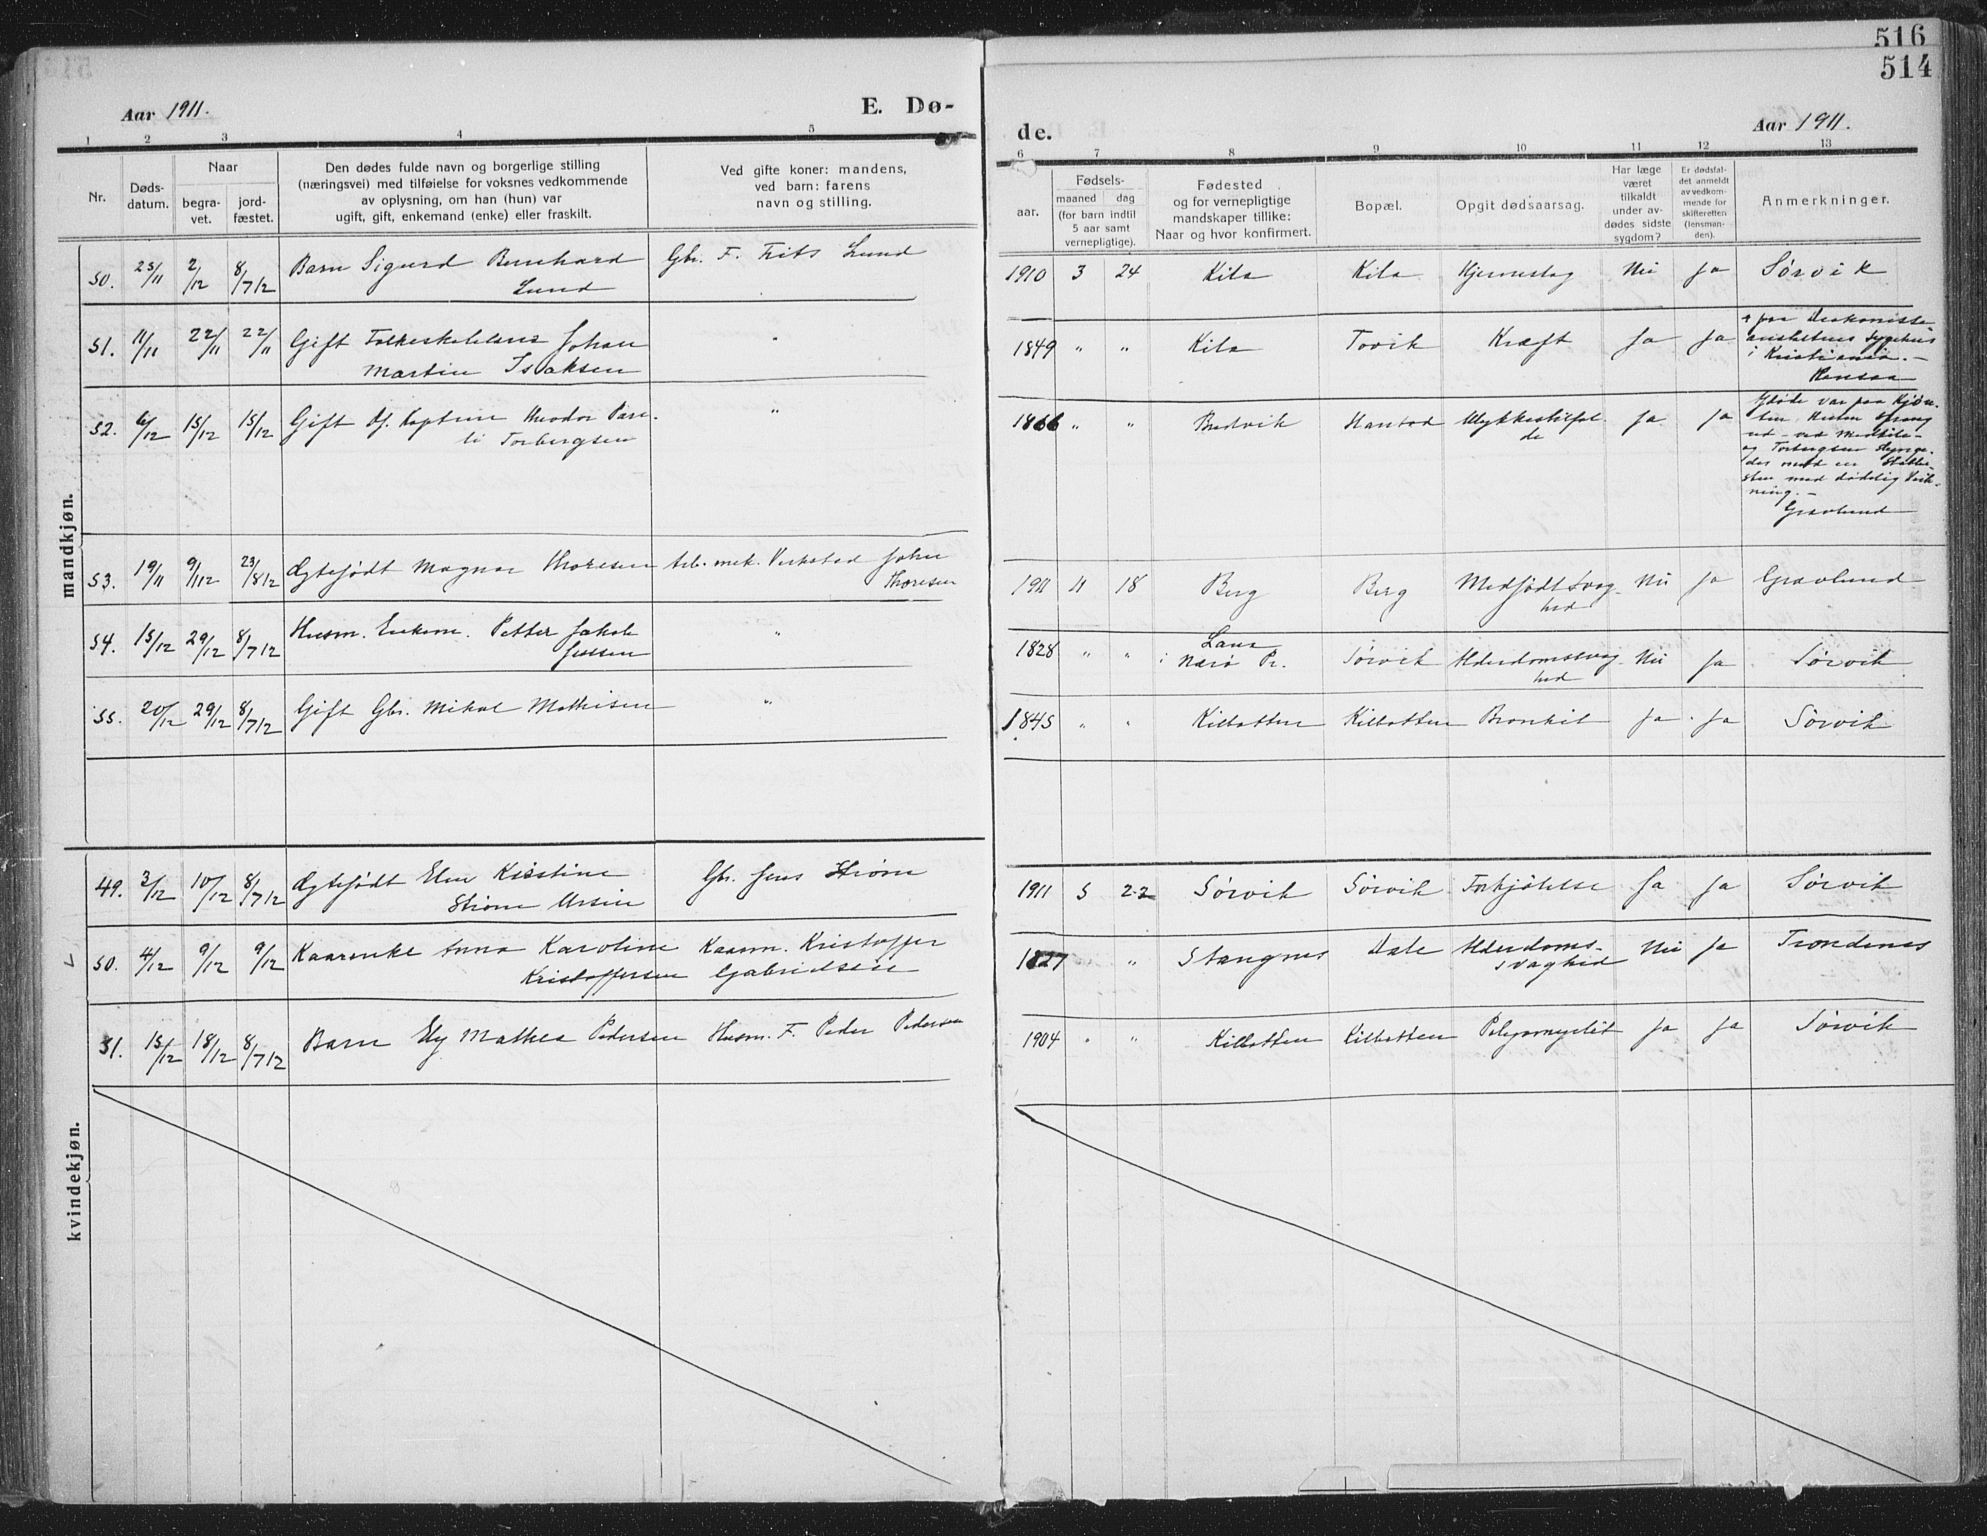 516
514
Aar 1911.
E. Dø-
de.
Aar 1911.
1 2 3 4 5
6 7 8 9 10 11 12 13
Nr.
Døds-
datum.
Naar
begra-
vet.
jord-
fæstet.
Den dødes fulde navn og borgerlige stilling
(næringsvei) med tilføielse for voksnes vedkommende
av oplysning, om han (hun) var
ugift, gift, enkemand (enke) eller fraskilt.
Ved gifte koner: mandens,
ved barn: farens
navn og stilling.
aar.
Fødsels-
maaned dag
(for barn indtil
5 aar samt
vernepligtige).
Fødested
og for vernepligtige
mandskaper tillike:
Naar og hvor konfirmert.
Bopæl.
Opgit dødsaarsag.
Har læge
været
tilkaldt
under av-
dødes sidste
sygdom?
Er dødsfal-
det anmeldt
av vedkom-
mende for
skifteretten
(lensman-
den).
Anmerkninger.
mandkjøn.
50. 25/11 2/12 8/7 12 Barn Sigurd Bernhard Gbr. F. Frits Lund 1910 3 24 Kila Kila Hjerneslag Nei Ja Sørvik
Lund
51. 11/11 22/11 22/11 Gift Johan " 1849 " " Kila Tovik Kræft Ja Ja
Martin Isaksen
+ paa Diakonisse-
anstaltens Sygehus
i Kristiania. -
52. 6/12 15/12 15/12 Gift Df. Kaptein Theodor " 1866 " " Bredvik Harstad Ulykkestilfel- Ja Ja
Torbergsen
de
var paa
Hesten sprang
ud - ved
og Torbergsen slynge-
des mod en
sten med dødelig Virk-
ning. -
Gravlund
53. 19/11 9/1 12 23/8 12 Ægtefødt Magnar Thoresen Arb. mek. Verksted John 1911 11 18 Berg Berg Medfødt Svag- Nei Ja Gravlund
Thoresen
hed
54. 15/12 29/12 8/7 12 Husm. Enkem. Petter Jakob " 1828 " " i Nærø Pr. Sørvik Alderdomssvag- Nei Ja Sørvik
Jensen
hed
55. 20/12 29/12 8/7 12 Gift Gbr. Mikal Mathisen " 1845 " " Kilbotten Kilbotten Bronkit Ja Ja Sørvik
kvindekjøn.
49. 3/12 10/12 8/7 12 Ægtefødt Elen Kristine Gbr. Jens Strøm 1911 5 22 Sørvik Sørvik Forkjølelse Ja Ja Sørvik
Strøm Ursin
50. 4/12 9/12 9/12 Kaarenke Anna Karoline Kaarm. Kristoffer 1827 " Stangnes Dale Alderdoms- Nei Ja Trondenes
Kristoffersen Gabrielsen
svaghed
51. 15/12 18/12 8/7 12 Barn Ely Mathea Pedersen Husm. F. Peder Pedersen 1904 " " Kilbotten Kilbotten Poliyomyelit Ja Ja Sørvik